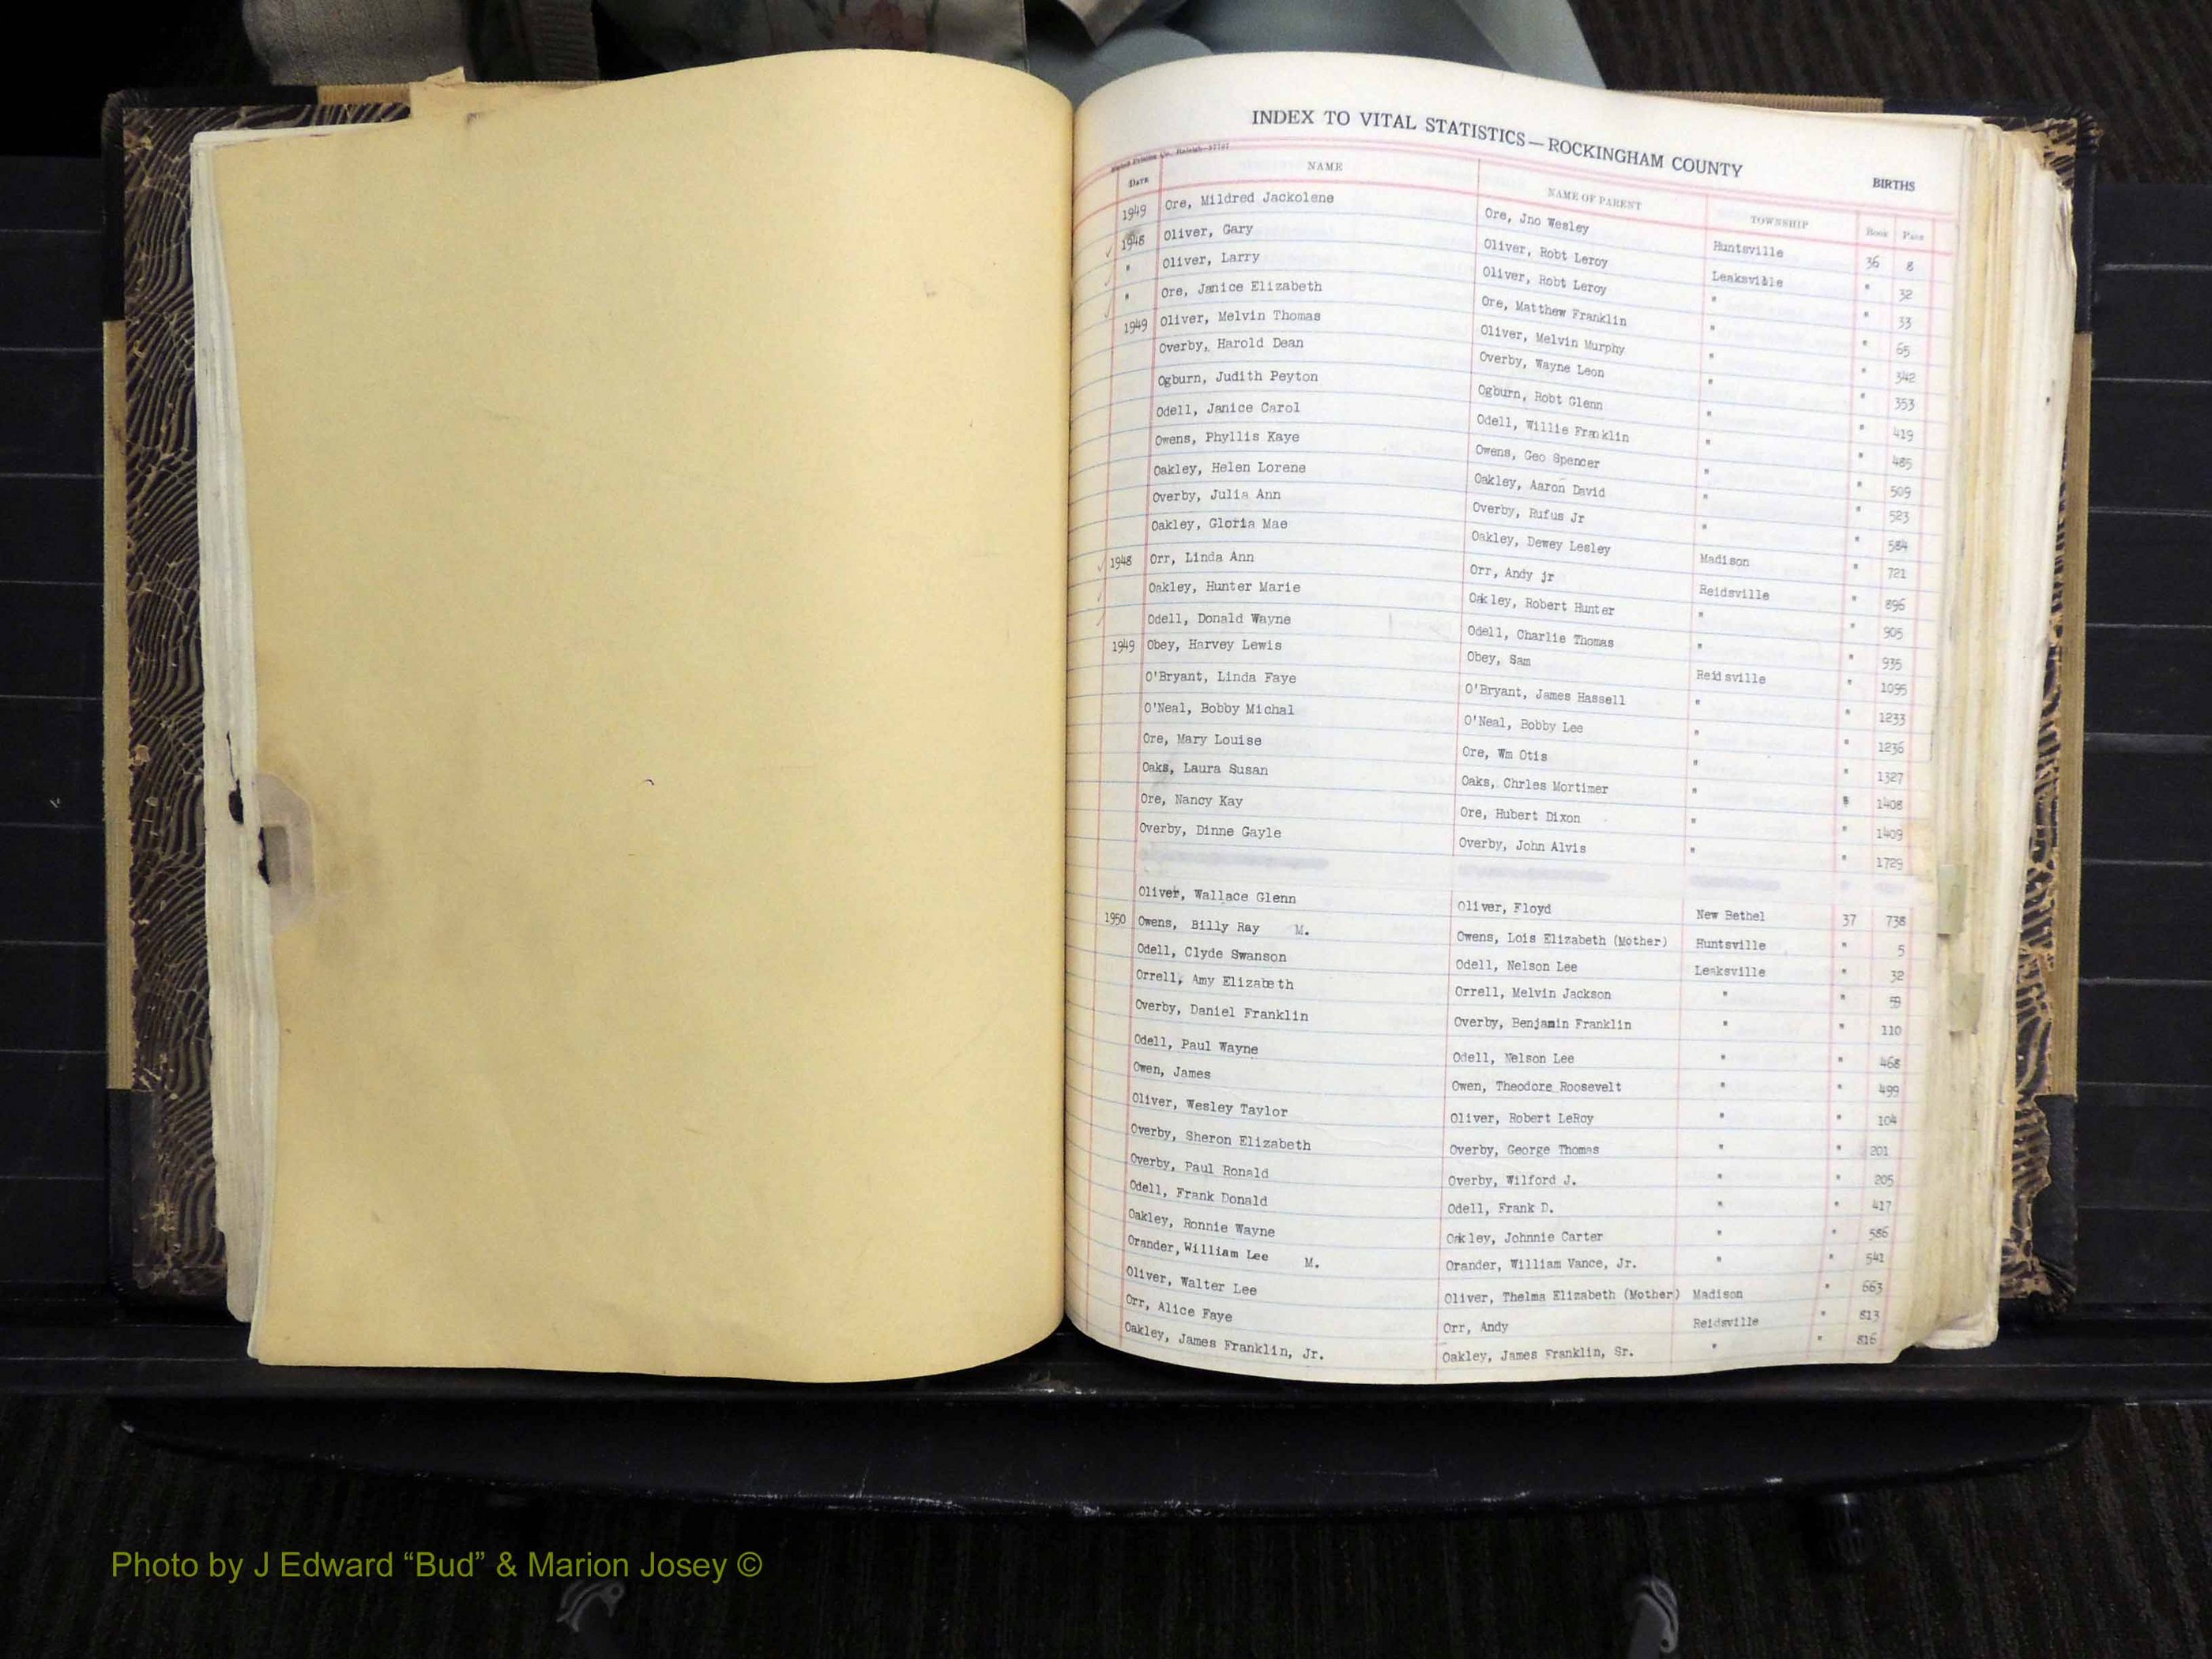 INDEX TO VITAL STATISTICS—ROCKINGHAM COUNTY
BIRTHS
DATE NAME NAME OF PARENT TOWNSHIP BOOK PAGE
1949 Ore, Mildred Jackolene Ore, Jno Wesley Huntsville 36 8
1948 Oliver, Gary Oliver, Robt Leroy Leaksville " 32
" Oliver, Larry Oliver, Robt Leroy " " 33
" Ore, Janice Elizabeth Ore, Matthew Franklin " " 65
1949 Oliver, Melvin Thomas Oliver, Melvin Murphy " " 342
Overby, Harold Dean Overby, Wayne Leon " " 353
Ogburn, Judith Peyton Ogburn, Robt Glenn " " 419
Odell, Janice Carol Odell, Willie Franklin " " 485
Owens, Phyllis Kaye Owens, Geo Spencer " " 509
Oakley, Helen Lorene Oakley, Aaron David " " 523
Overby, Julia Ann Overby, Rufus Jr " " 584
Oakley, Gloria Mae Oakley, Dewey Lesley Madison " 721
1948 Orr, Linda Ann Orr, Andy jr Reidsville " 896
Oakley, Hunter Marie Oakley, Robert Hunter " " 905
Odell, Donald Wayne Odell, Charlie Thomas " " 935
1949 Obey, Harvey Lewis Obey, Sam Reidsville " 1095
O'Bryant, Linda Faye O'Bryant, James Hassell " " 1233
O'Neal, Bobby Michal O'Neal, Bobby Lee " " 1236
Ore, Mary Louise Ore, Wm Otis " " 1327
Oaks, Laura Susan Oaks, Chrles Mortimer " " 1408
Ore, Nancy Kay Ore, Hubert Dixon " " 1409
Overby, Dinne Gayle Overby, John Alvis " " 1729
Oliver, Wallace Glenn Oliver, Floyd New Bethel 37 738
1950 Owens, Billy Ray M. Owens, Lois Elizabeth (Mother) Huntsville " 5
Odell, Clyde Swanson Odell, Nelson Lee Leaksville " 32
Orrell, Amy Elizabeth Orrell, Melvin Jackson " " 59
Overby, Daniel Franklin Overby, Benjamin Franklin " " 110
Odell, Paul Wayne Odell, Nelson Lee " " 468
Owen, James Owen, Theodore Roosevelt " " 499
Oliver, Wesley Taylor Oliver, Robert LeRoy " " 104
Overby, Sheron Elizabeth Overby, George Thomas " " 201
Overby, Paul Ronald Overby, Wilford J. " " 205
Odell, Frank Donald Odell, Frank D. " " 417
Oakley, Ronnie Wayne Oakley, Johnnie Carter " " 586
Orander, William Lee M. Orander, William Vance, Jr. " " 541
Oliver, Walter Lee Oliver, Thelma Elizabeth (Mother) Madison " 663
Orr, Alice Faye Orr, Andy Reidsville " 813
Oakley, James Franklin, Jr. Oakley, James Franklin, Sr. " " 816
Photo by J Edward “Bud” & Marion Josey ©